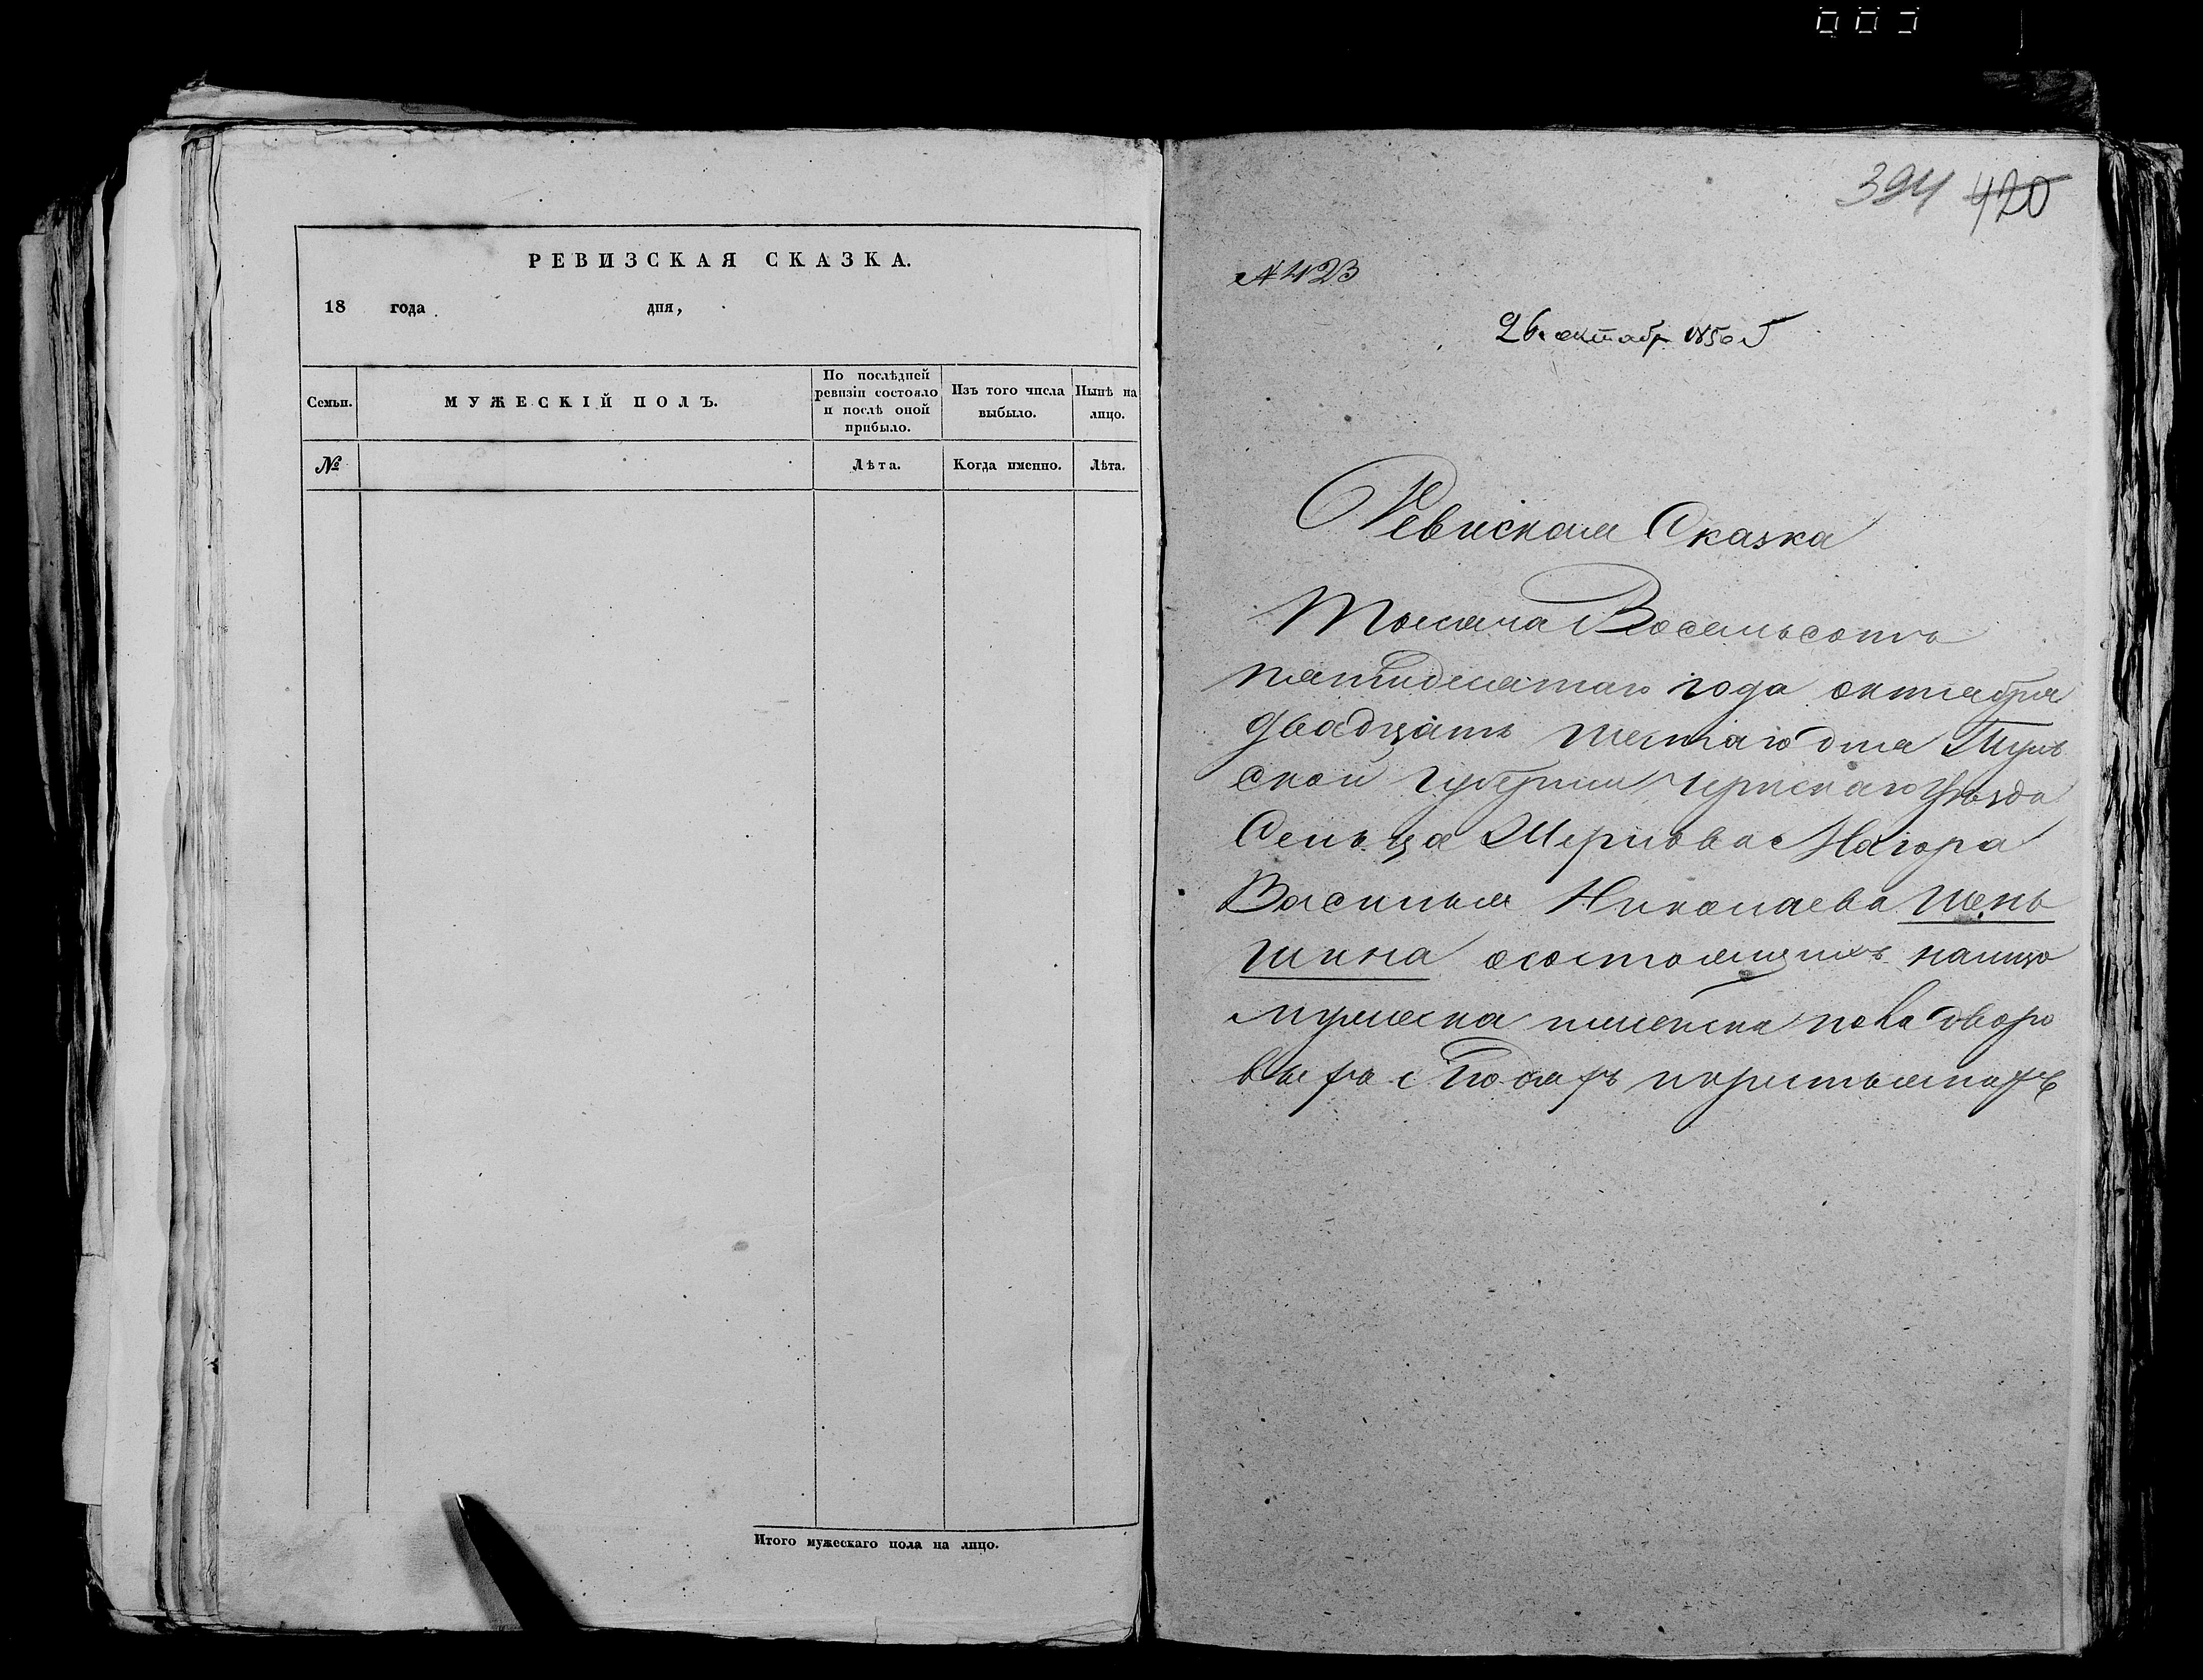 РЕВИЗСКАЯ СКАЗКА.
18 года дня,
Семьи.
МУЖЕСКІЙ ПОЛЪ.
По послѣдней
ревизіи состояло
и послѣ оной
прибыло.
Изъ того числа
выбыло.
Нынѣ на
лицо.
№
Лѣта.
Когда именно.
Лѣта.
Итого мужескаго пола на лицо.
394 420
№ 423
26 октябр 1850 г
Ревиская Сказка
Тысеча Восемьсотъ
пятидесятаго года октября
двадцать шестаго дня Туль
ской губернии Чернскаго Уѣзда
Сельца Маіора
Василья Николаева Шень
шина осостоящихъ налицо
мужеска иженска пола дворо
выхъ Людяхъ икрестьянахъ